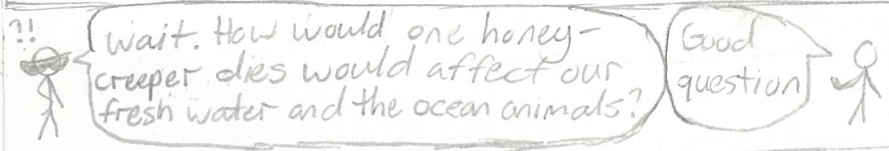 ?!
Wait. How would one honey-
creeper dies would affect our
fresh water and the ocean animals?
Good
question